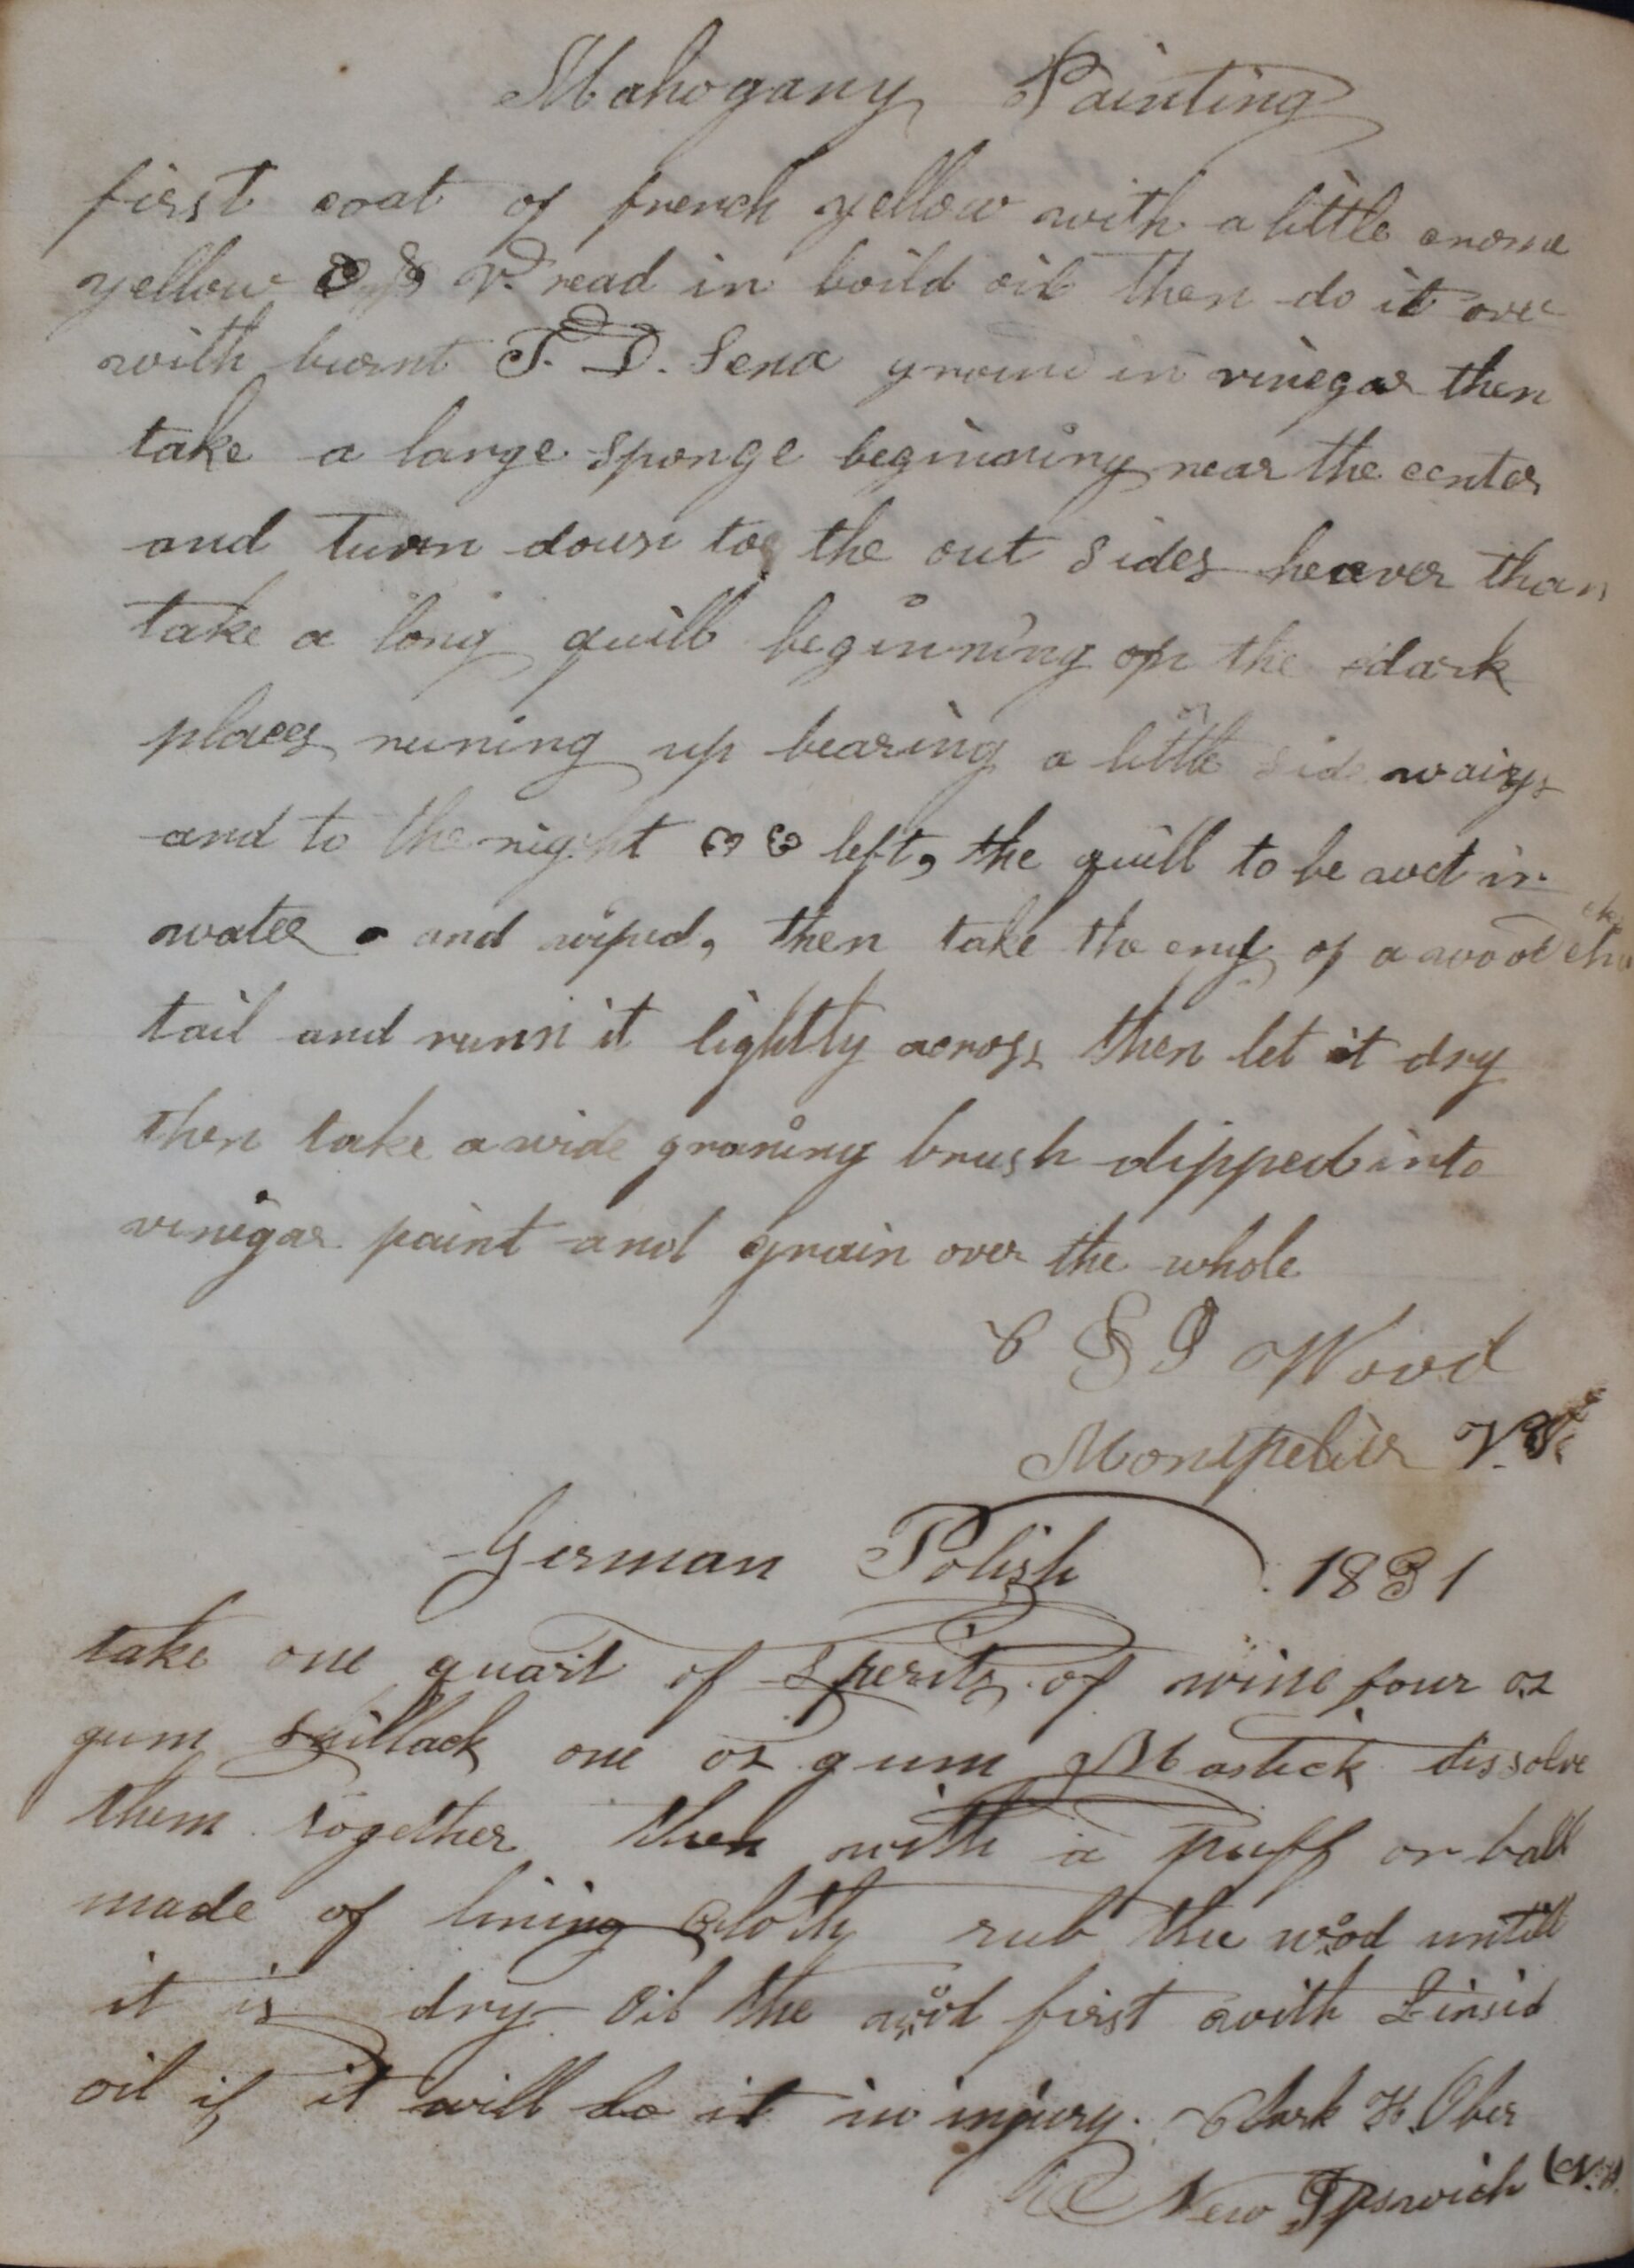 Mahogany Painting
first coat of french yellow with a little crome
yellow & V. read in boild oil then do it over
with burnt T. D. Sena ground in vinegar then
take a large sponge beginning near the center
and turn down to the out sides heaver than
take a long quill beginning on the dark
places runing up bearing a little side ways
and to the right & left, the quill to be wet in
water and wiped, then take the end of a wood chuck
tail and runn it lightly across then let it dry
then take a wide graning brush dipped into
vinegar paint and grain over the whole
Wood
Montpelier V.T.
German Polish 1831
take one quart of Sperits of wine four oz
gum shillack one oz gum Mastick dissolve
them together then with a puff or ball
made of lining Cloth rub the wood untill
it is dry Oil the wood first with Linsid
oil if it will do it no injury. Clark H. Ober
New Ipswich (N.H.